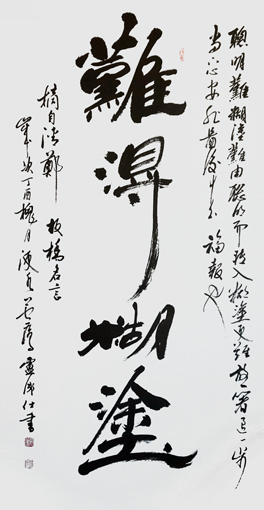 難得糊塗
聰明難糊塗難由聰明而轉入糊塗更難放一著退一步
當下心安非圖後來福報也
摘自清鄭板橋名言
歲次丁酉槐月
書